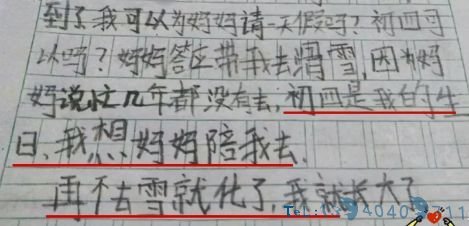 到了我可以为妈妈请一天假吗？初四可
以吗？妈妈答应带我去滑雪，因为妈
妈说忙几年都没有去，初四是我的生
日、我想妈妈陪我去、
再不去雪就化了，我就长大了